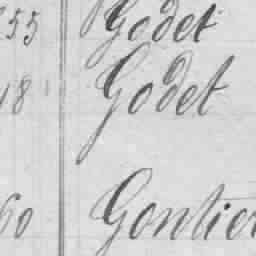 255 Godet
18 Godet
60 Gontier